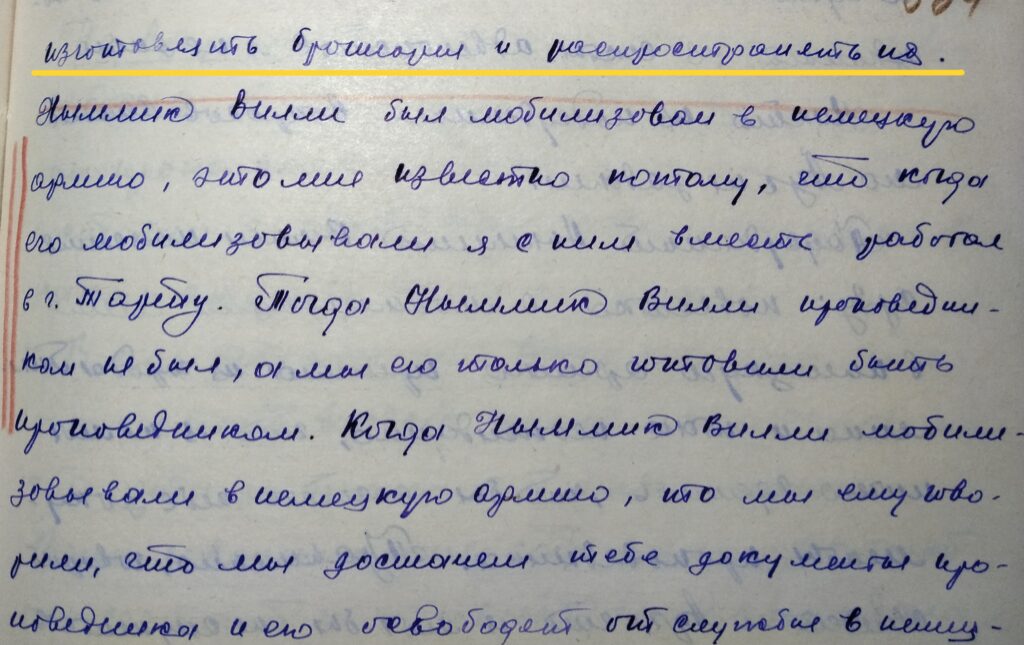 изготовлять брошюры и распространять их.
Ныммик Вилли был мобилизован в немецкую
армию, это мне известно потому, что когда
его мобилизовывали я с ним вместе работал
в г. Тарту. Тогда Ныммик Вилли проповедни-
ком не был, а мы его только готовили быть
проповедником. Когда Ныммик Вилли мобили-
зовывали в немецкую армию, то мы ему гово-
рили, что мы достанем тебе документы про-
поведника и его освободят от службы в немец-